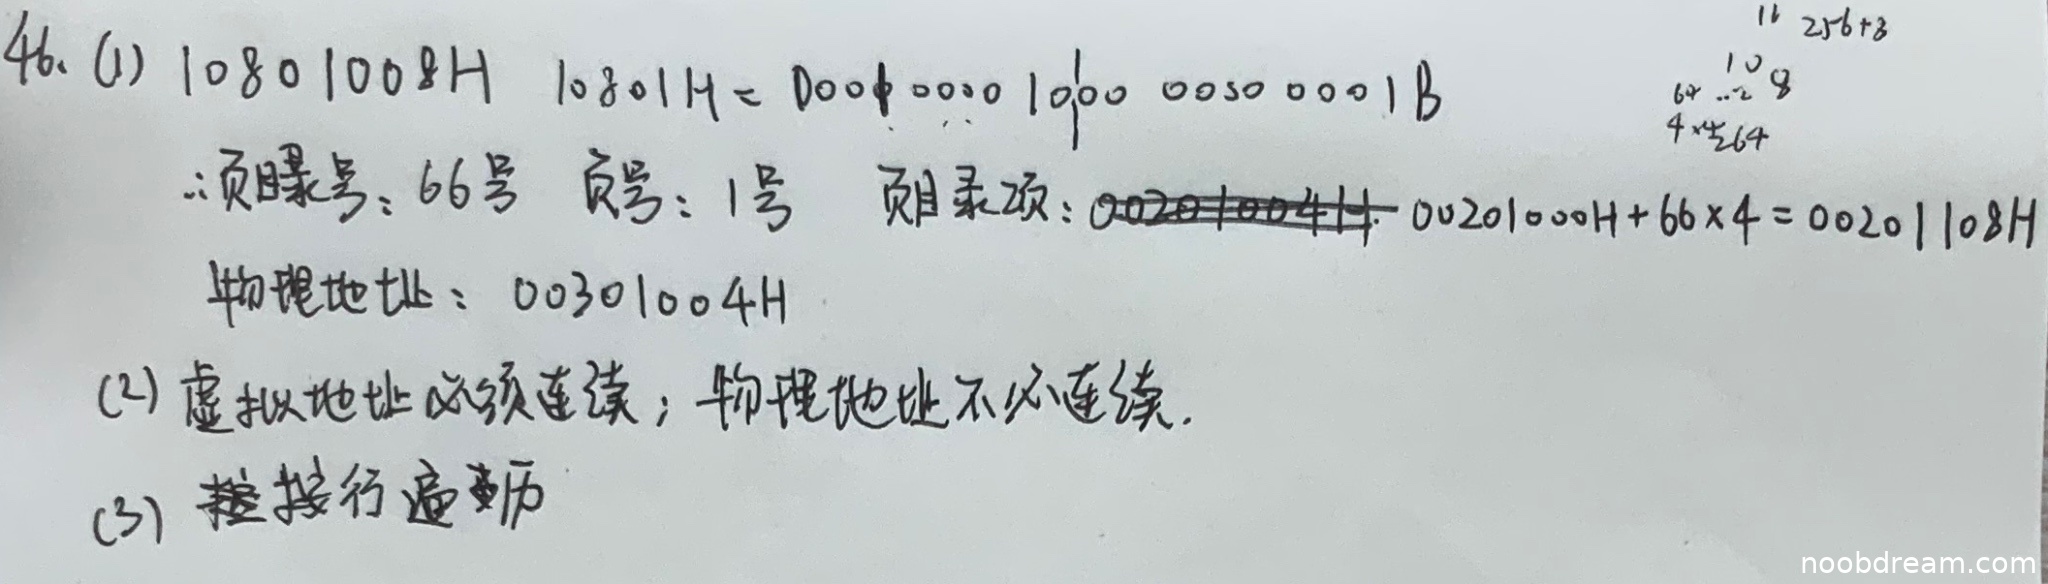 46. (1) 10801008H 10801H = 0001 0000 1000 0000 0001B
∴页目录号: 66号 页号: 1号 页目录项: 00201004H 00201000H+66×4=00201108H
物理地址: 00301004H
(2) 虚拟地址必须连续; 物理地址不必连续.
(3) 按行遍历
16 256+8
10
64 8
noobdream.com